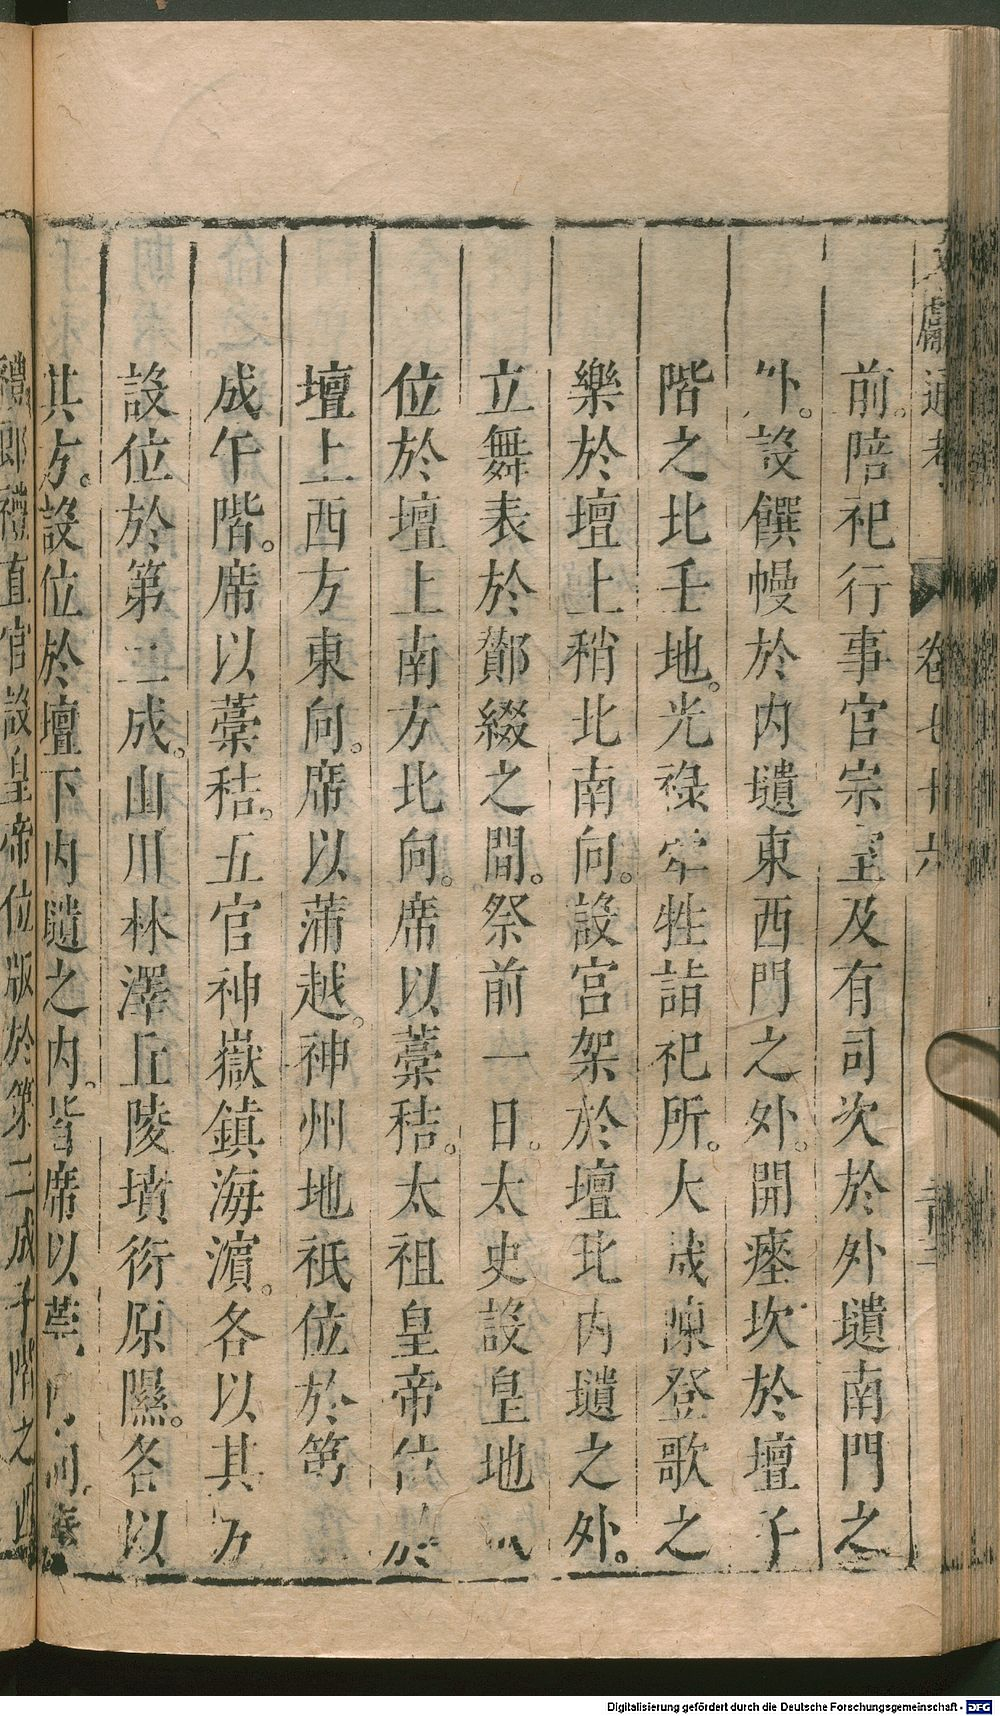 通考 卷七十六
前。陪祀行事官宗室及有司次於外壝南門之
外。設饌幔於內壝東西門之外。開瘞坎於壇子
階之北壬地。光祿牽牲詣祀所。大晟陳登歌之
樂於壇上稍北南向。設宮架於壇北內壝之外。
立舞表於酇綴之間。祭前一日。太史設皇地
位於壇上南方北向。席以藁秸。太祖皇帝位於
壇上西方東向。席以蒲越。神州地祇位於第
成午階。席以藁秸。五官神嶽鎮海瀆。各以其方
設位於第二成。山川林澤丘陵墳衍原隰。各以
其方。設位於壇下內壝之內。皆席以莞
禮郎禮直官設皇帝位版於第二成子階之
Digitalisierung gefördert durch die Deutsche Forschungsgemeinschaft - DFG